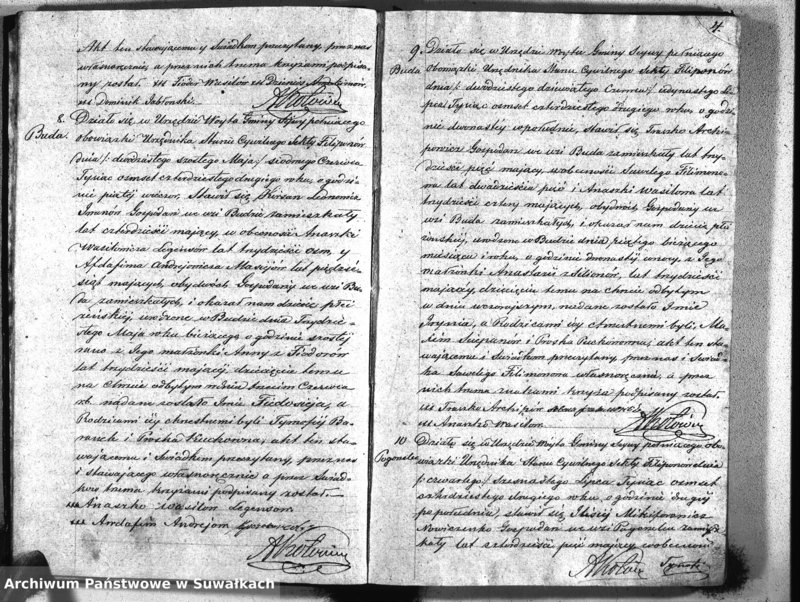 Akt ten stawającemu y Świadkom przeczytany, przez nas
własnoręcznie, a przez nich trzema krzyżami podpisa-
ny został. Fiedor Wasilów Dzienis
Dominik Jabłonski.
8. Działo się w Urzędzie Woyta Gminy Seyny pełniącego
Buda. obowiązki Urzędnika Stanu Cywilnego Sekty Filiponów
dnia /: dwudziestego szóstego Maja :/ siódmego Czerwca
Tysiąc osmset czterdziestego drugiego roku, o godzi-
nie piątej wieczor, Stawił się Kirsan
Gospodarz we wsi Budzie zamieszkały
lat czterdzieści mający, w obecności Ananki
Wasilowicza Legensów lat trzydzieści osm, y
Andrejowicza lat pięćdzie-
siąt mających, obydwóch Gospodarzy we wsi Bu-
da zamieszkałych, i okazał nam dziecie płci
żeńskiej urodzone w Budzie dnia Trzydzie-
stego Maja roku bieżącego o godzinie szostej
rano z Jego małżonki Anny z Fiedorów
lat trzydzieści mającej dziecięciu temu
na Chrzcie odbytym w dniu trzecim Czerwca
rb. nadane zostało Imie Fiedosieja, a
Rodzicami iey chrzestnemi byli Tymofiey Ba-
ranuch i Proska Ruchowna, akt ten sta-
wającemu i Świadkom przeczytany, przez nas
i stawającego własnoręcznie a przez Świad-
ków trzema krzyżami podpisany został.
Ananko Wasilow Legensow
Andrejow
9. Działo się w Urzędzie Woyta Gminy Seyny pełniącego
Buda obowiązki Urzędnika Stanu Cywilnego Sekty Filiponów
dnia /: dwudziestego dziewiątego Czerwca / jedynastego Li-
pca Tysiąc osmset czterdziestego drugiego roku, o godzi-
nie dwunastej w południe, Stawił się Iwanko Archi-
powicz Gospodarz we wsi Buda zamieszkały lat trzy-
dzieści pięć mający, w obecności Sawelego Filimono-
na lat dwadzieścia pięć i Ananki Wasilowa lat
trzydzieści cztery mających, obydwóch Gospodarzy we
wsi Buda zamieszkałych, i okazał nam dziecie płci
żeńskiej, urodzone w Budzie dnia piątego bieżącego
miesiąca i roku, o godzinie dwunastej w nocy, z Jego
małżonki Anastazii z lat trzydzieści
mającej, dziecięciu temu na chrzcie odbytym
w dniu wczorajszym, nadane zostało Imie
a Rodzicami iey Chrzestnemi byli, Ma-
xim i Proska Ruchonowna, akt ten sta-
wającemu i Świadkom przeczytany, przez nas i Świad-
ka Sawelego Filimonowa własnoręcznie, a przez
nich trzema znakami krzyża podpisany został.
Iwanko Archipow
Ananko Wasilow
10 Działo się w Urzędzie Woyta Gminy Seyny pełniącego obo-
Pogorzelec wiązki Urzędnika Stanu Cywilnego Sekty Filiponów dnia
/: czwartego / szesnastego Lipca Tysiąc osmset
czterdziestego drugiego roku, o godzinie drugiej
po południu, stawił się
Gospodarz we wsi Pogorzelcu zamiesz-
kały lat czterdzieści pięć mający w obecności
4.
Archiwum Państwowe w Suwałkach